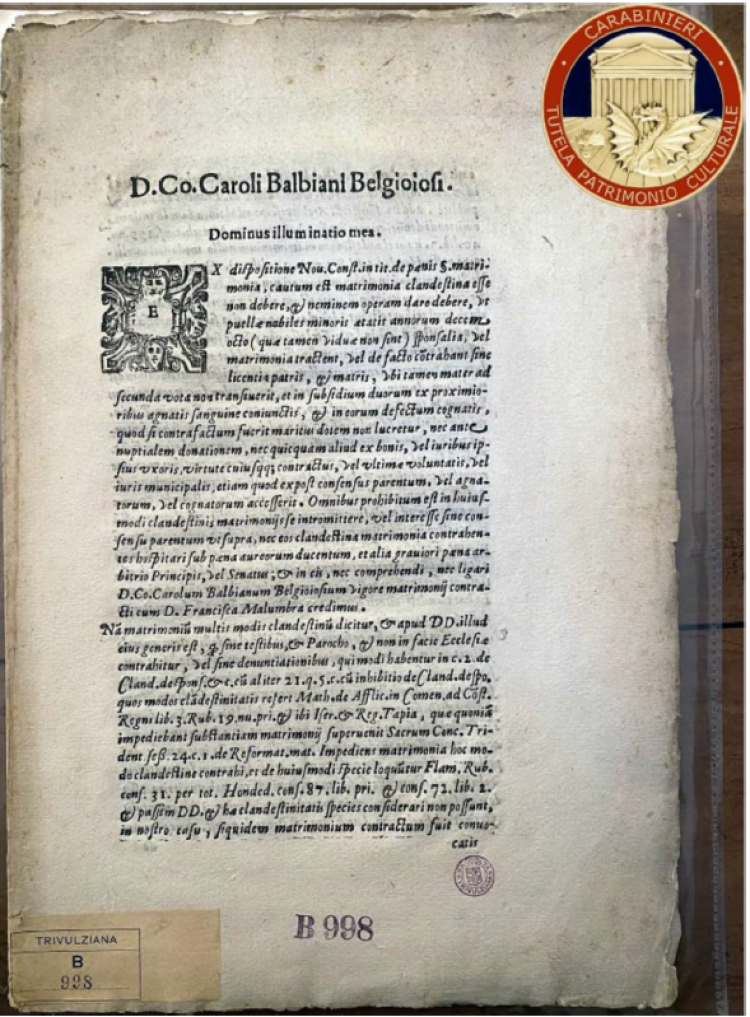 CARABINIERI
TUTELA PATRIMONIO CULTURALE
D. Co. Caroli Balbiani Belgioiosi.
Dominus illuminatio mea.
EX dispositione Nou. Const. in tit. de pœnis §. matri-
monia, cautum est matrimonia clandestina esse
non debere, & neminem operam daro debere, vt
puellæ nobiles minoris ætatis annorum decem
octo (quæ tamen viduæ non sint) sponsalia, vel
matrimonia tractent, vel de facto cōtrahant sine
licentia patris, & matris, vbi tamen mater ad
secunda vota non transiuerit, et in subsidium duorum ex proximio-
ribus agnatis sanguine coniunctis, & in eorum defectum cognatis,
quod si contrafactum fuerit maritus dotem non lucretur, nec ante
nuptialem donationem, nec quicquam aliud ex bonis, vel iuribus ip-
sius vxoris, virtute cuiusqq; contractus, vel vltimæ voluntatis, vel
iuris municipalis, etiam quod ex post consensus parentum, vel agna-
torum, vel cognatorum accesserit. Omnibus prohibitum est in huius-
modi clandestinis matrimonijs se intromittere, vel interesse sine con-
sensu parentum vt supra, nec eos clandestina matrimonia contrahen-
tes hospitari sub pœna aureorum ducentum, et alia grauiori pœna ar-
bitrio Principis, vel Senatus; & in eis, nec comprehendi, nec ligari
D. Co. Carolum Balbianum Belgioiosium vigore matrimonij contra-
cti cum D. Francisca Malumbra credimus.
Nā matrimoniū multis modis clandestinū dicitur, & apud DD. illud
eius generis est, q̃ sine testibus, & Parocho, & non in facie Ecclesiæ
contrahitur, vel sine denuntiationibus, qui modi habentur in c. 2. de
Cland. despons. & c. cū aliter 21. q. 5. c. cū inhibitio de Cland. despo.
quos modos clādestinitatis refert Math. de Afflic. in Comen. ad Cōst.
Regni lib. 3. Rub. 19. nu. pri. & ibi Iser. & Reg. Tapia, quæ quoniā
impediebant substantiam matrimonij superuenit Sacrum Conc. Tri-
dent. seß. 24. c. 1. de Reformat. mat. Impediens matrimonia hoc mo-
do clandestine contrahi, et de huiusmodi specie loquūtur Flam. Rub.
cons. 31. per tot. Honded. cons. 87. lib. pri. & cons. 72. lib. 2.
& passim DD. & hæ clandestinitatis species considerari non possunt,
in nostro casu, siquidem matrimonium contractum fuit conuo-
catis
B 998
TRIVULZIANA
B
998